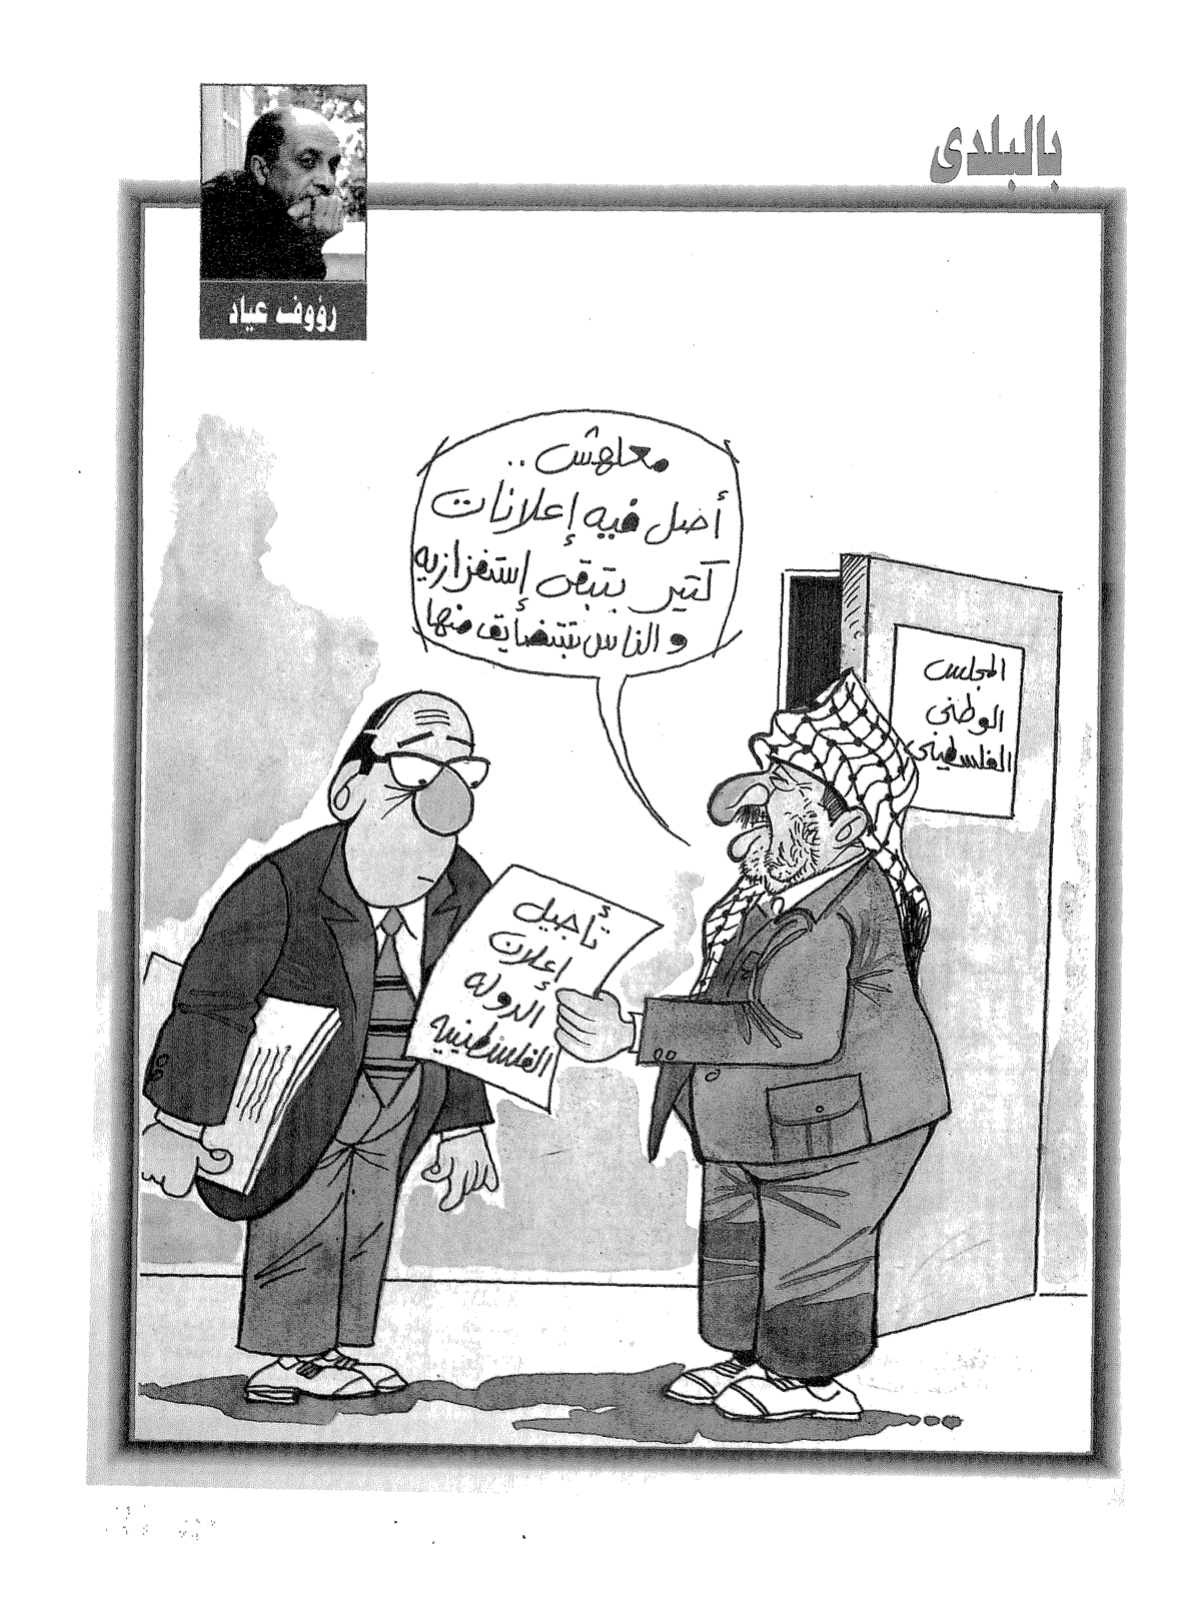 بالبلدى
رؤوف عياد
معلهش ..
أصل فيه إعلانات
كتير بتبقى إستفزازيه
والناس بتتضايق منها
المجلس
الوطنى
الفلسطينى
تأجيل
إعلان
الدوله
الفلسطينيه